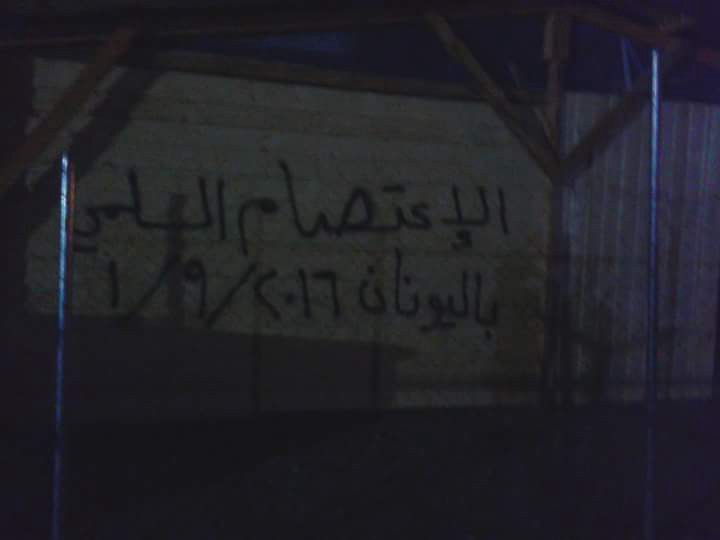 الإعتصام السلمي
باليونان ٢٠١٦/٩/١